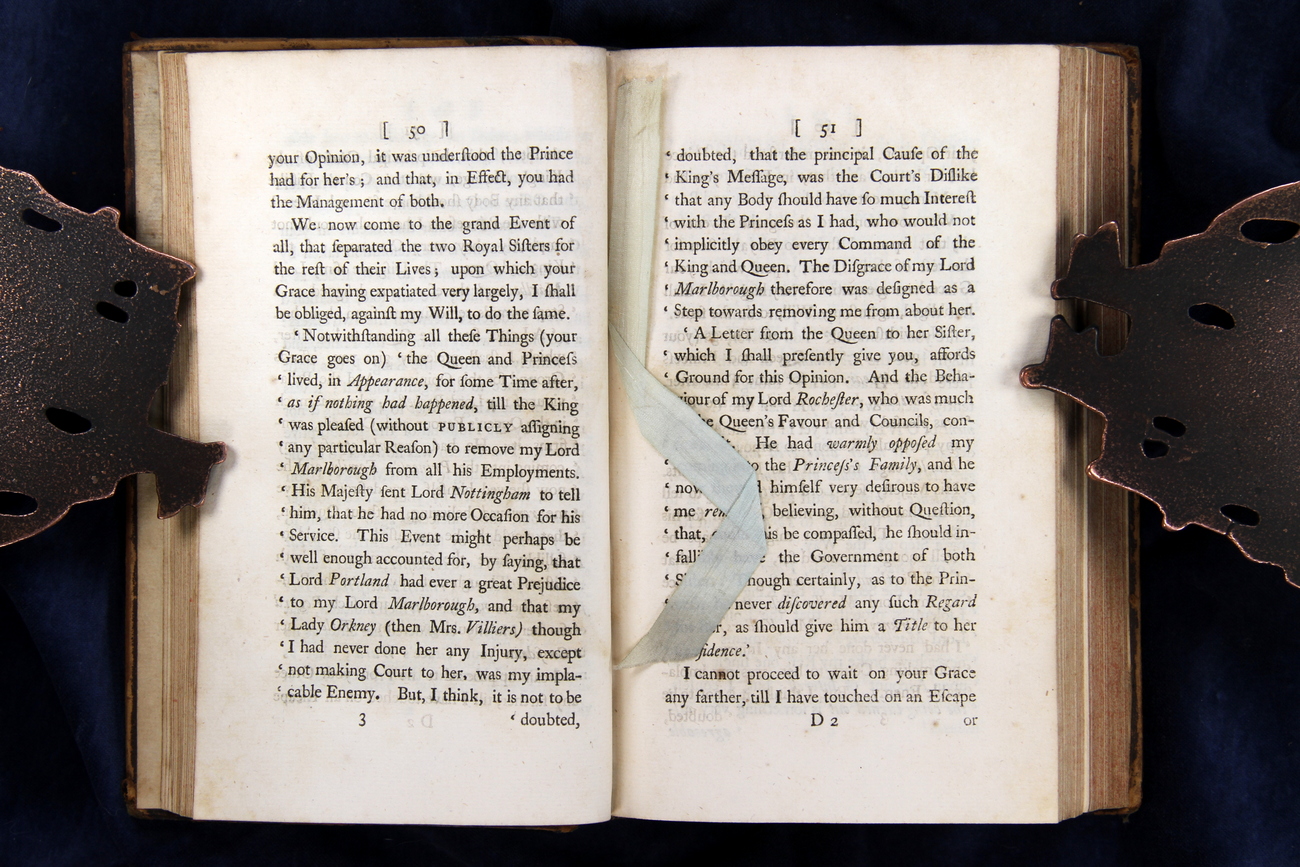 [ 50 ]
your Opinion, it was underſtood the Prince
had for her's ; and that, in Effect, you had
the Management of both.
We now come to the grand Event of
all, that ſeparated the two Royal Siſters for
the reſt of their Lives ; upon which your
Grace having expatiated very largely, I ſhall
be obliged, againſt my Will, to do the ſame.
‘ Notwithſtanding all theſe Things (your
Grace goes on) ‘ the Queen and Princeſs
‘ lived, in Appearance, for ſome Time after,
‘ as if nothing had happened, till the King
‘ was pleaſed (without PUBLICLY aſſigning
‘ any particular Reaſon) to remove my Lord
‘ Marlborough from all his Employments.
‘ His Majeſty ſent Lord Nottingham to tell
‘ him, that he had no more Occaſion for his
‘ Service. This Event might perhaps be
‘ well enough accounted for, by ſaying, that
‘ Lord Portland had ever a great Prejudice
‘ to my Lord Marlborough, and that my
‘ Lady Orkney (then Mrs. Villiers) though
‘ I had never done her any Injury, except
‘ not making Court to her, was my impla-
‘ cable Enemy. But, I think, it is not to be
3 ‘ doubted,
[ 51 ]
‘ doubted, that the principal Cauſe of the
‘ King's Meſſage, was the Court's Diſlike
‘ that any Body ſhould have ſo much Intereſt
‘ with the Princeſs as I had, who would not
‘ implicitly obey every Command of the
‘ King and Queen. The Diſgrace of my Lord
‘ Marlborough therefore was deſigned as a
‘ Step towards removing me from about her.
‘ A Letter from the Queen to her Siſter,
‘ which I ſhall preſently give you, affords
‘ Ground for this Opinion. And the Beha-
viour of my Lord Rocheſter, who was much
Queen's Favour and Councils, con-
He had warmly oppoſed my
the Princeſs's Family, and he
‘ now himſelf very deſirous to have
‘ me believing, without Queſtion,
‘ that, be compaſſed, he ſhould in-
‘ the Government of both
‘ though certainly, as to the Prin-
never diſcovered any ſuch Regard
as ſhould give him a Title to her
I cannot proceed to wait on your Grace
any farther, till I have touched on an Eſcape
D 2 or